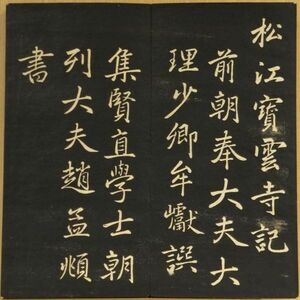 松江寶雲寺記
前朝奉大夫大
理少卿牟巘譔
集賢直學士朝
列大夫趙孟頫
書